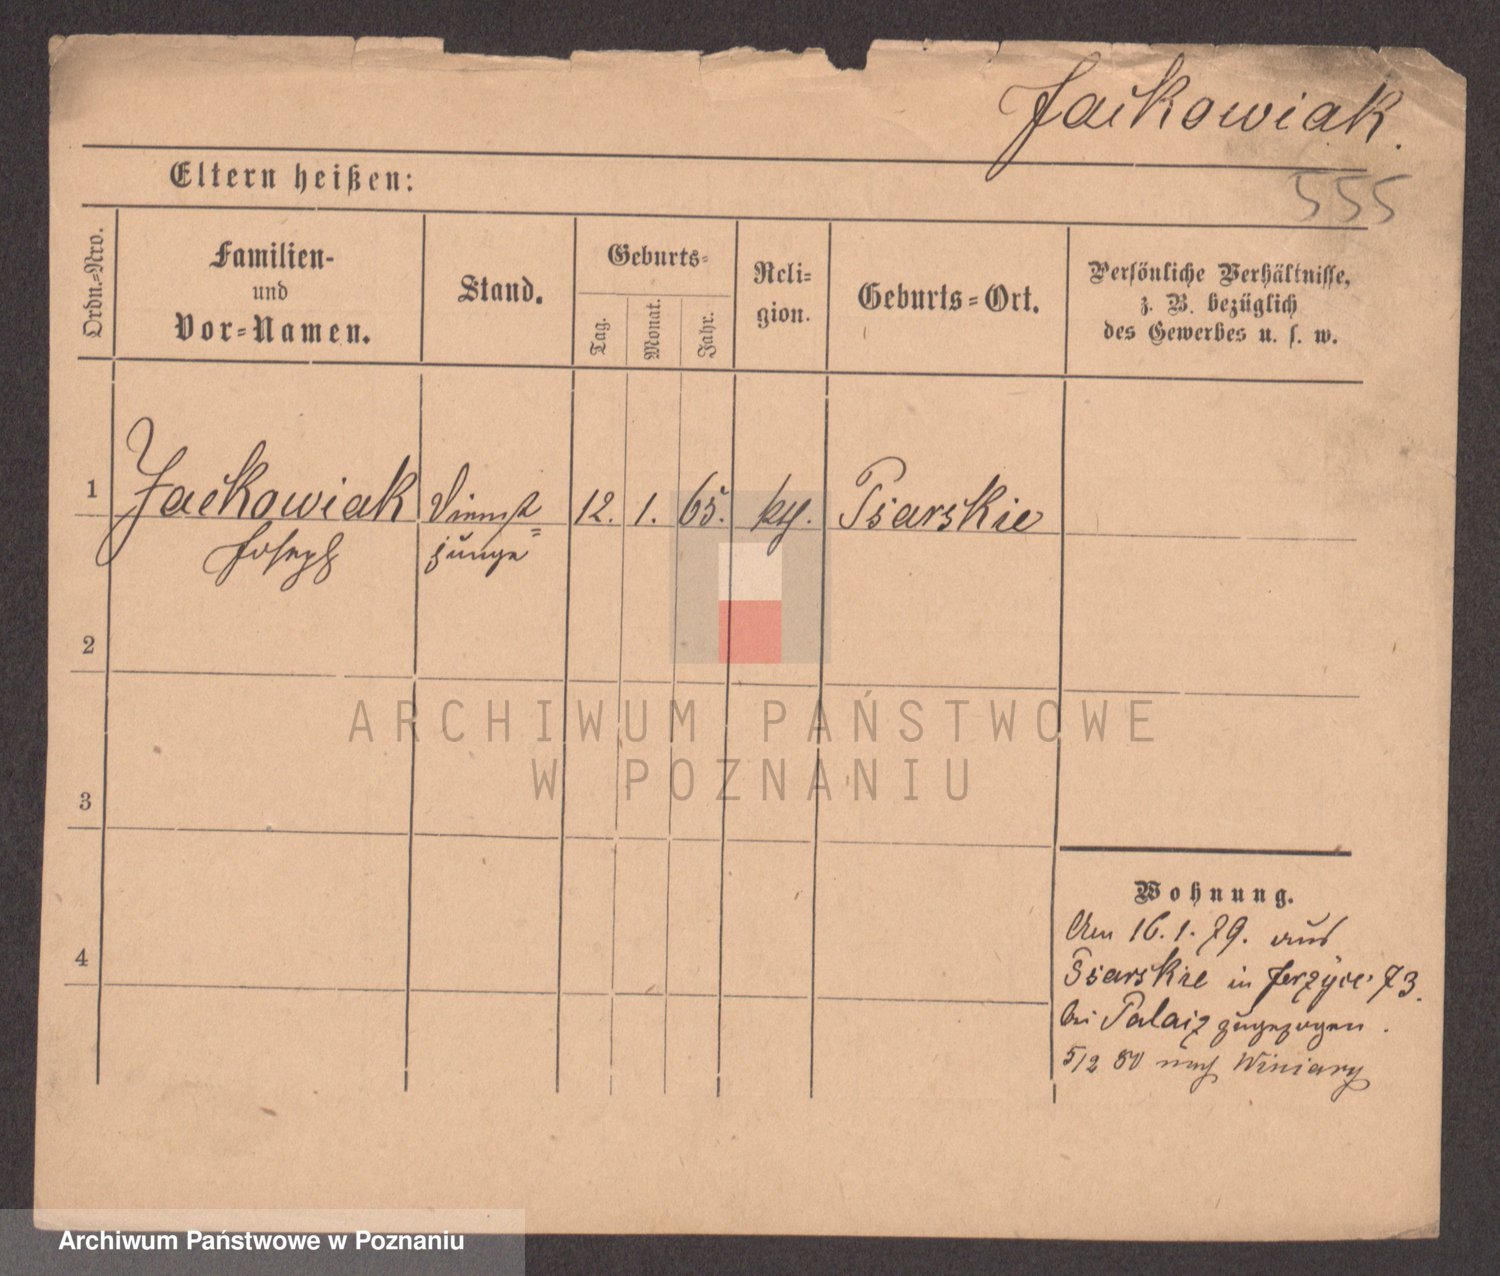 Jackowiak.
Eltern heißen:
555
Ordn.-Nro.
Familien-
und
Vor-Namen.
Stand.
Geburts-
Tag.
Monat.
Jahr.
Reli-
gion.
Geburts-Ort.
Persönliche Verhältnisse,
z. B. bezüglich
des Gewerbes u. s. w.
1 Jackowiak Dienst= 12. 1. 65. kth. Psarskie
Joseph junge
2
3
4
Wohnung.
Am 16.1.79. aus
Psarskie in Jerzyce 73.
bei Palacz zugezogen.
5/2 80 nach Winiary
ARCHIWUM PAŃSTWOWE
W POZNANIU
Archiwum Państwowe w Poznaniu